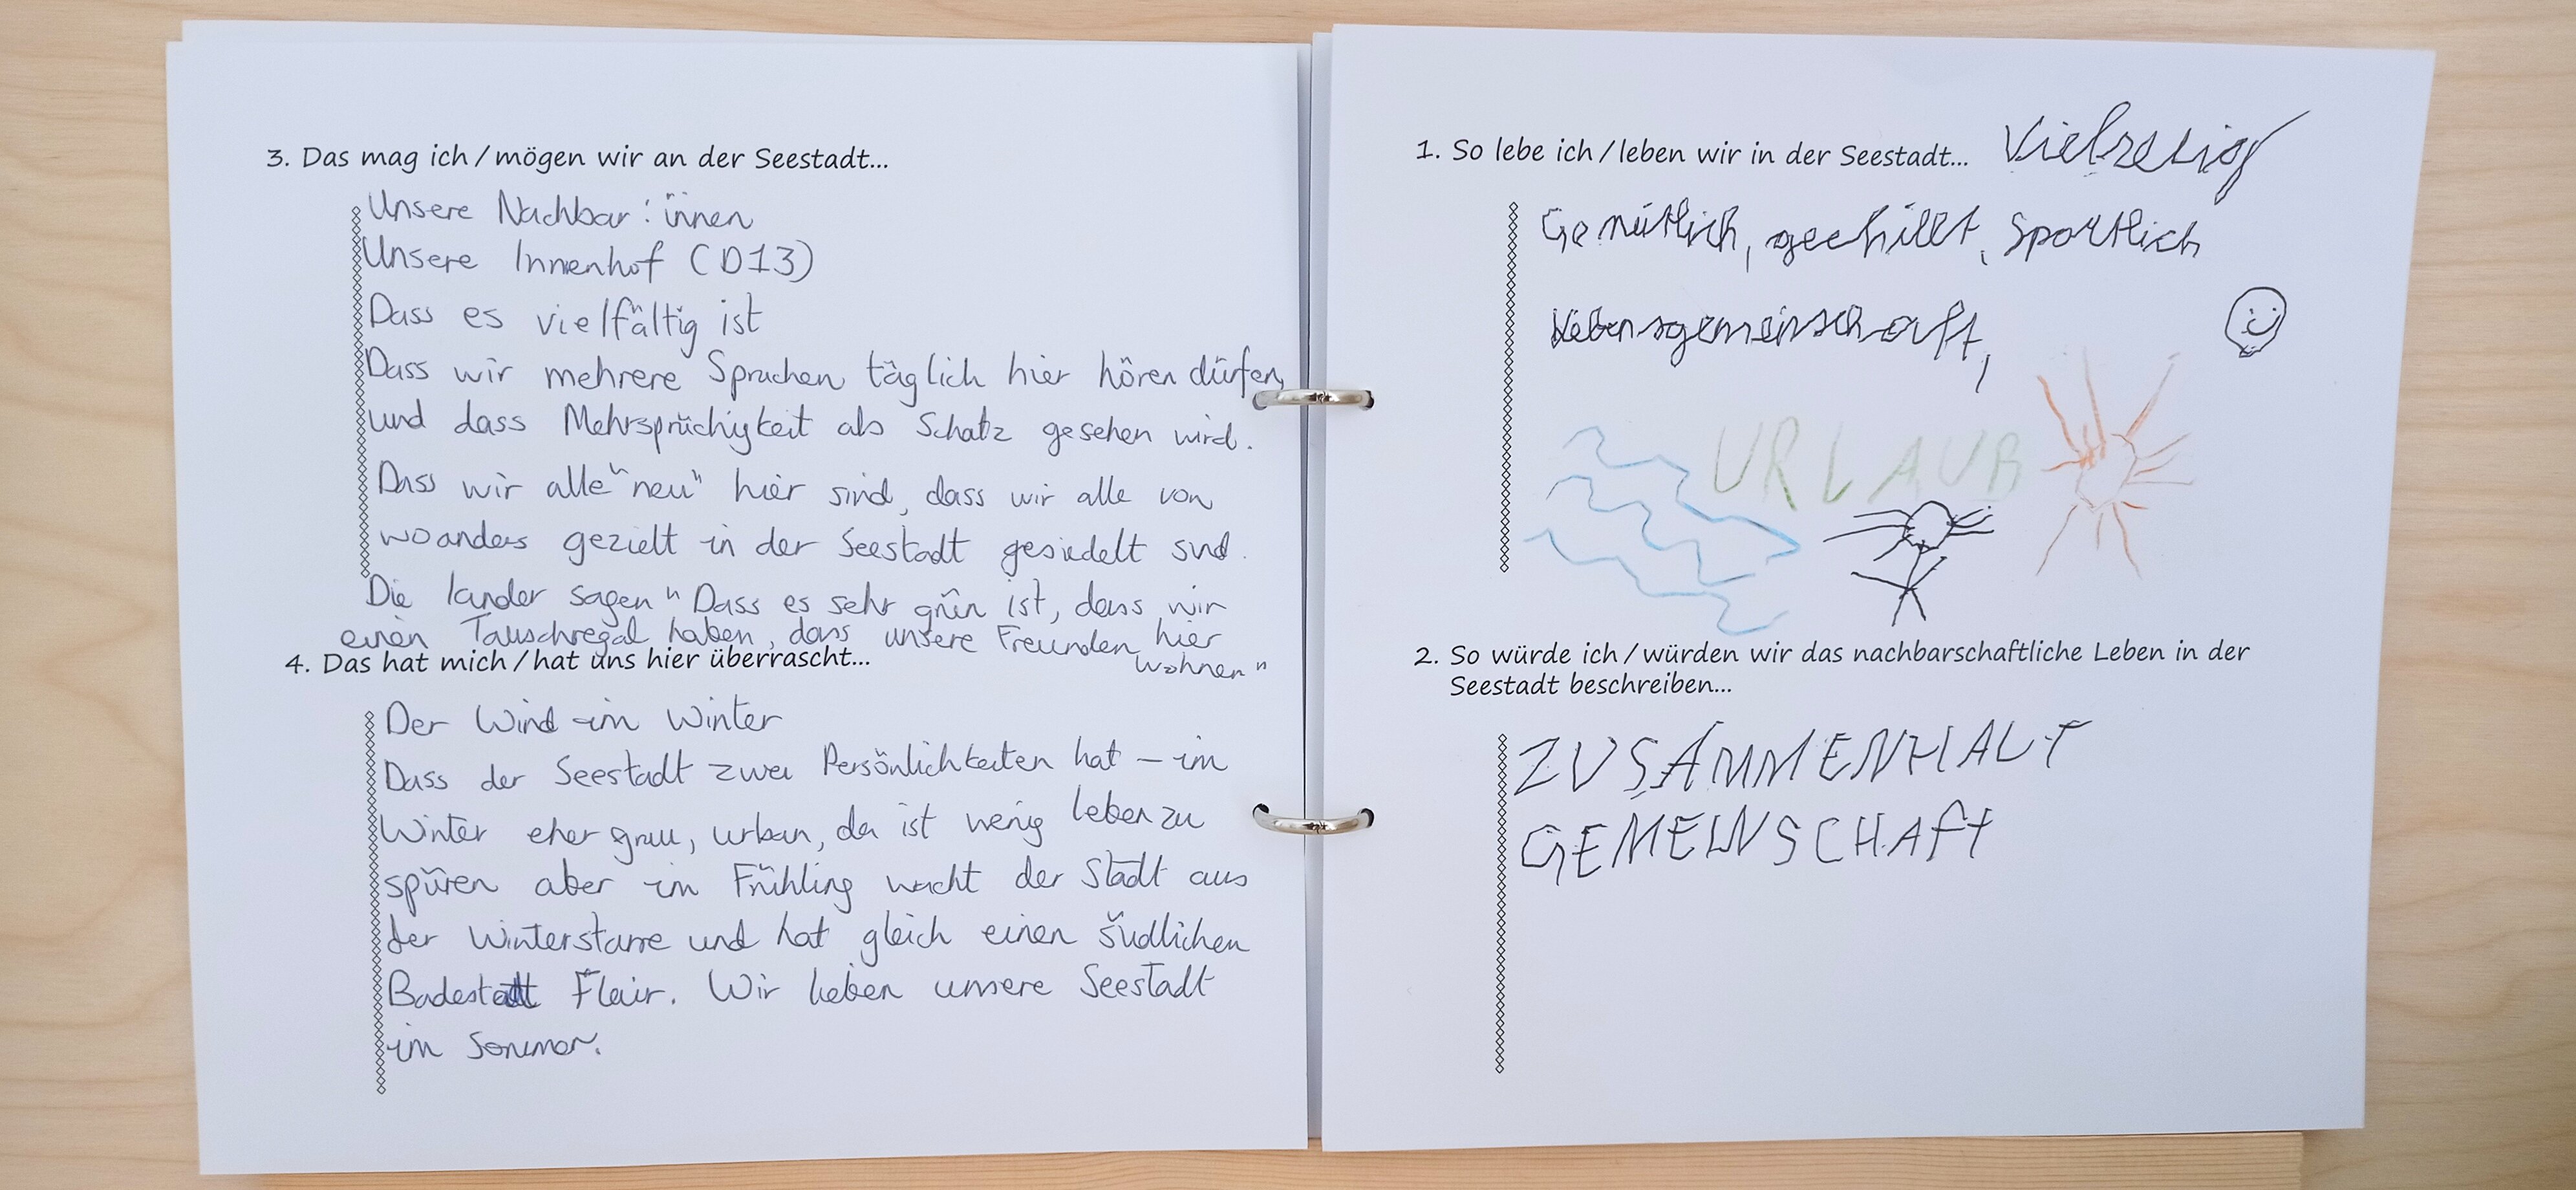 3. Das mag ich / mögen wir an der Seestadt...
Unsere Nachbar:innen
Unsere Innenhof (D13)
Dass es vielfältig ist
Dass wir mehrere Sprachen täglich hier hören dürfen,
und dass Mehrsprachigkeit als Schatz gesehen wird.
Dass wir alle "neu" hier sind, dass wir alle von
woanders gezielt in der Seestadt gesiedelt sind.
Die kander sagen "Dass es sehr grün ist, dass wir
einen Tauschregal haben, dass unsere Freunden hier
wohnen"
4. Das hat mich / hat uns hier überrascht...
Der Wind im Winter
Dass der Seestadt zwei Persönlichkeiten hat – im
Winter eher grau, urban, da ist wenig leben zu
spüren aber im Frühling wacht der Stadt aus
der Winterstarre und hat gleich einen südlichen
Badestadt Flair. Wir lieben unsere Seestadt
im Sommer.
1. So lebe ich / leben wir in der Seestadt... Vielzeitig
Gemütlich, gechillt, Sportlich
Lebensgemeinschaft,
URLAUB
2. So würde ich / würden wir das nachbarschaftliche Leben in der
Seestadt beschreiben...
ZUSAMMENHALT
GEMEINSCHAft